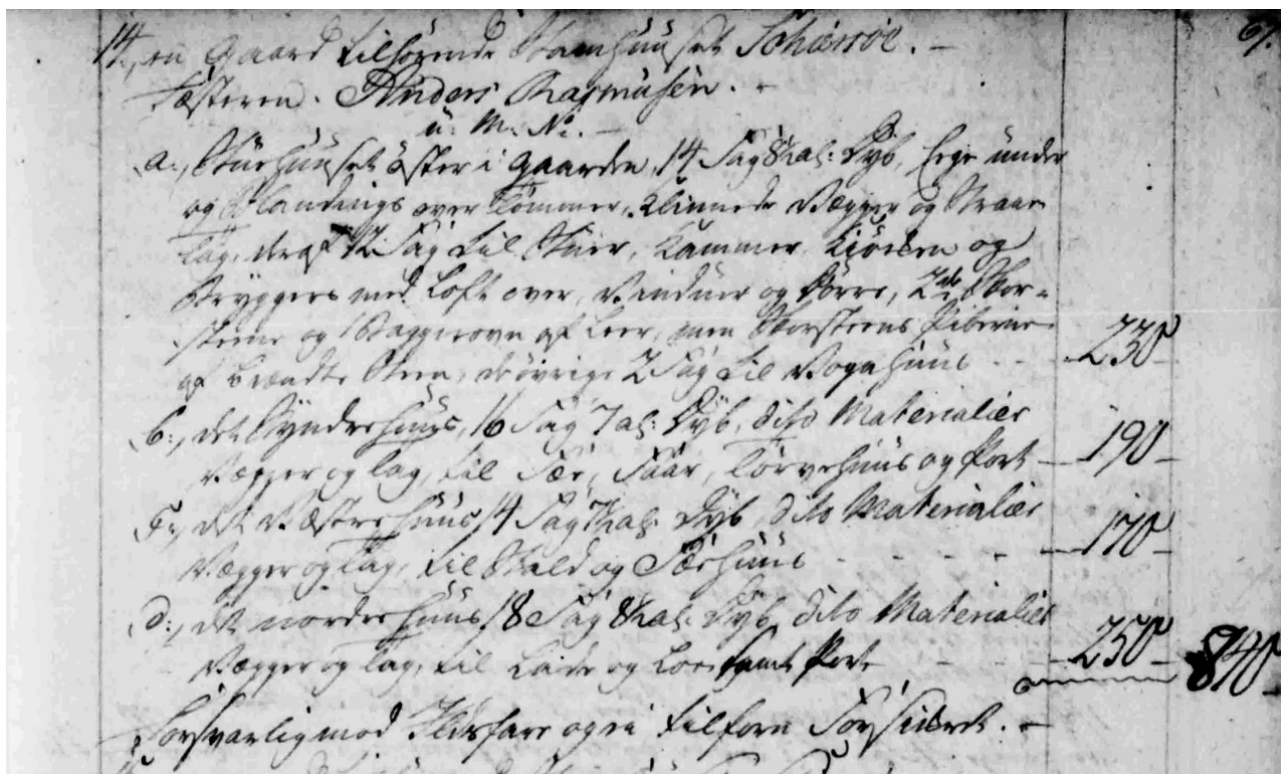 67.
14, en Gaard tilhørende Stamhuuset Schierröe. -
Fæsteren. Anders Rasmusen. -
u. M. No. -
a., Stuehuuset öster i Gaarden, 14 Fag 8 Al: Dyb, Eege under
og Blandings over Tømmer, Klinnede Vægger og Straae
Tag, deraf 12 Fag til Stuer, Kammer, Kiöcken og
Bryggers med Loft over, Vinduer og Dörre, 2de Skor-
steene og 1 Baggerovn af Leer, men Skorsteens Piberne
af brændte Steen, de övrige 2 Fag til Vognhuus - 230
b:, det Syndre huus, 16 Fag 7 al: Dyb, dito Materialier
Vægger og Tag, til Fæe, Faar, Törvehuus og Port - 190 -
c:, det Vestre huus 14 Fag al: Dyb, dito Materialier
Vægger og Tag, til Stald og Fæehuus - - - - 170 -
d:, det nordre huus 18 Fag al: Dyb, dito Materialier
Vægger og Tag, til Lade og Loe samt Port - - - 250 - 840 -
Forsvarlig mod Ildsfare og i tilforn Forsikret. -